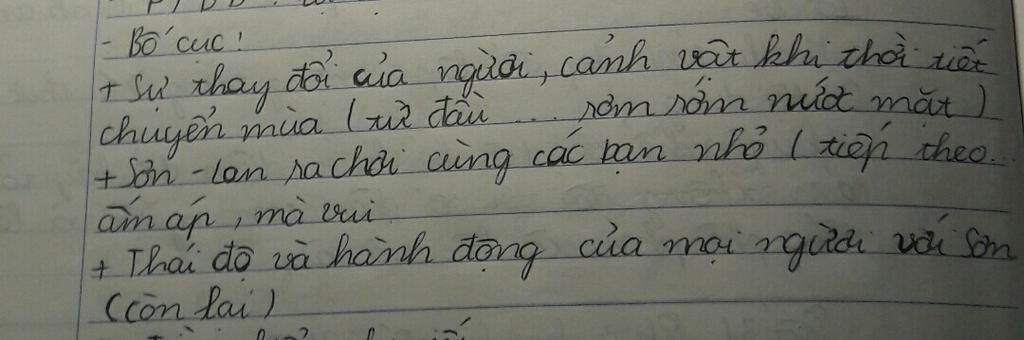 - Bố cục:
+ Sự thay đổi của người, cảnh vật khi thời tiết
chuyển mùa (từ đầu ... rơm rớm nước mắt)
+ Sơn - Lan ra chơi cùng các bạn nhỏ (tiếp theo...
ấm áp, mà vui
+ Thái độ và hành động của mọi người với Sơn
(còn lại)